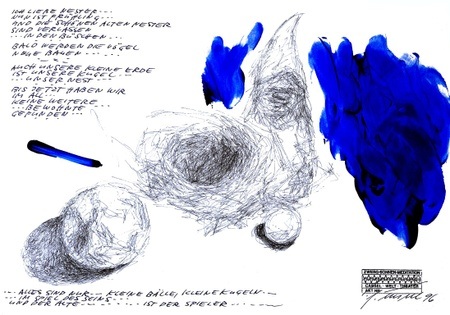 ICH LIEBE NESTER ...
NUN IST FRÜHLING ...
UND DIE SCHÖNEN ALTEN NESTER
SIND VERLASSEN
... IN DEN BÜSCHEN ...
BALD WERDEN DIE VÖGEL
NEUE BAUEN ......
AUCH UNSERE KLEINE ERDE
IST UNSERE KUGEL ...
... UNSER NEST ...
BIS JETZT HABEN WIR
IM ALL ...
KEINE WEITERE
... BEWOHNTE ...
GEFUNDEN ...
... ALLES SIND NUR ... KLEINE BÄLLE, KLEINE KUGELN ...
... IM SPIEL DES SEINS ...
UND DER ALTE ... IST DER SPIELER ...
ZWERG-BOHNEN-MEDITATION
CASSEL WELT THEATER
96